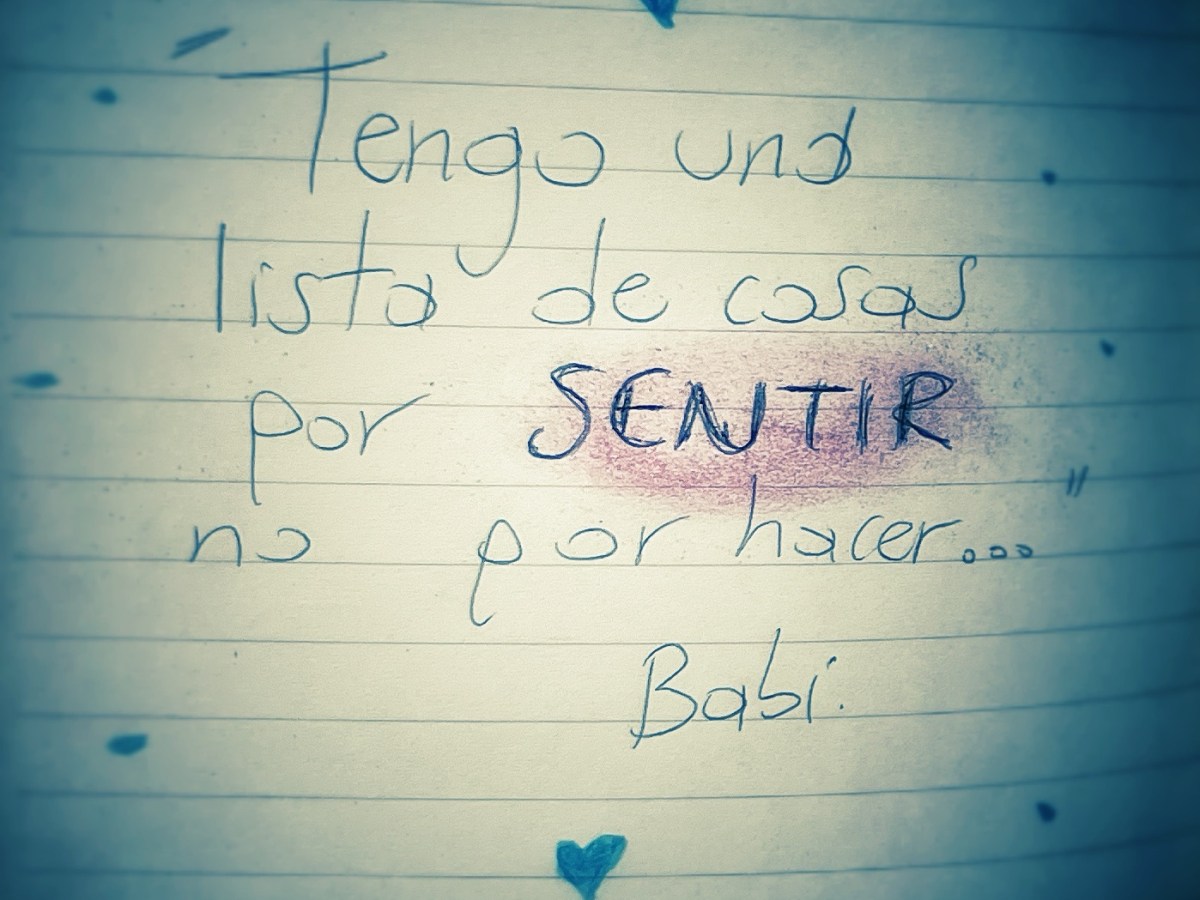 "Tengo una
lista de cosas
por SENTIR
no por hacer..."
Babi.